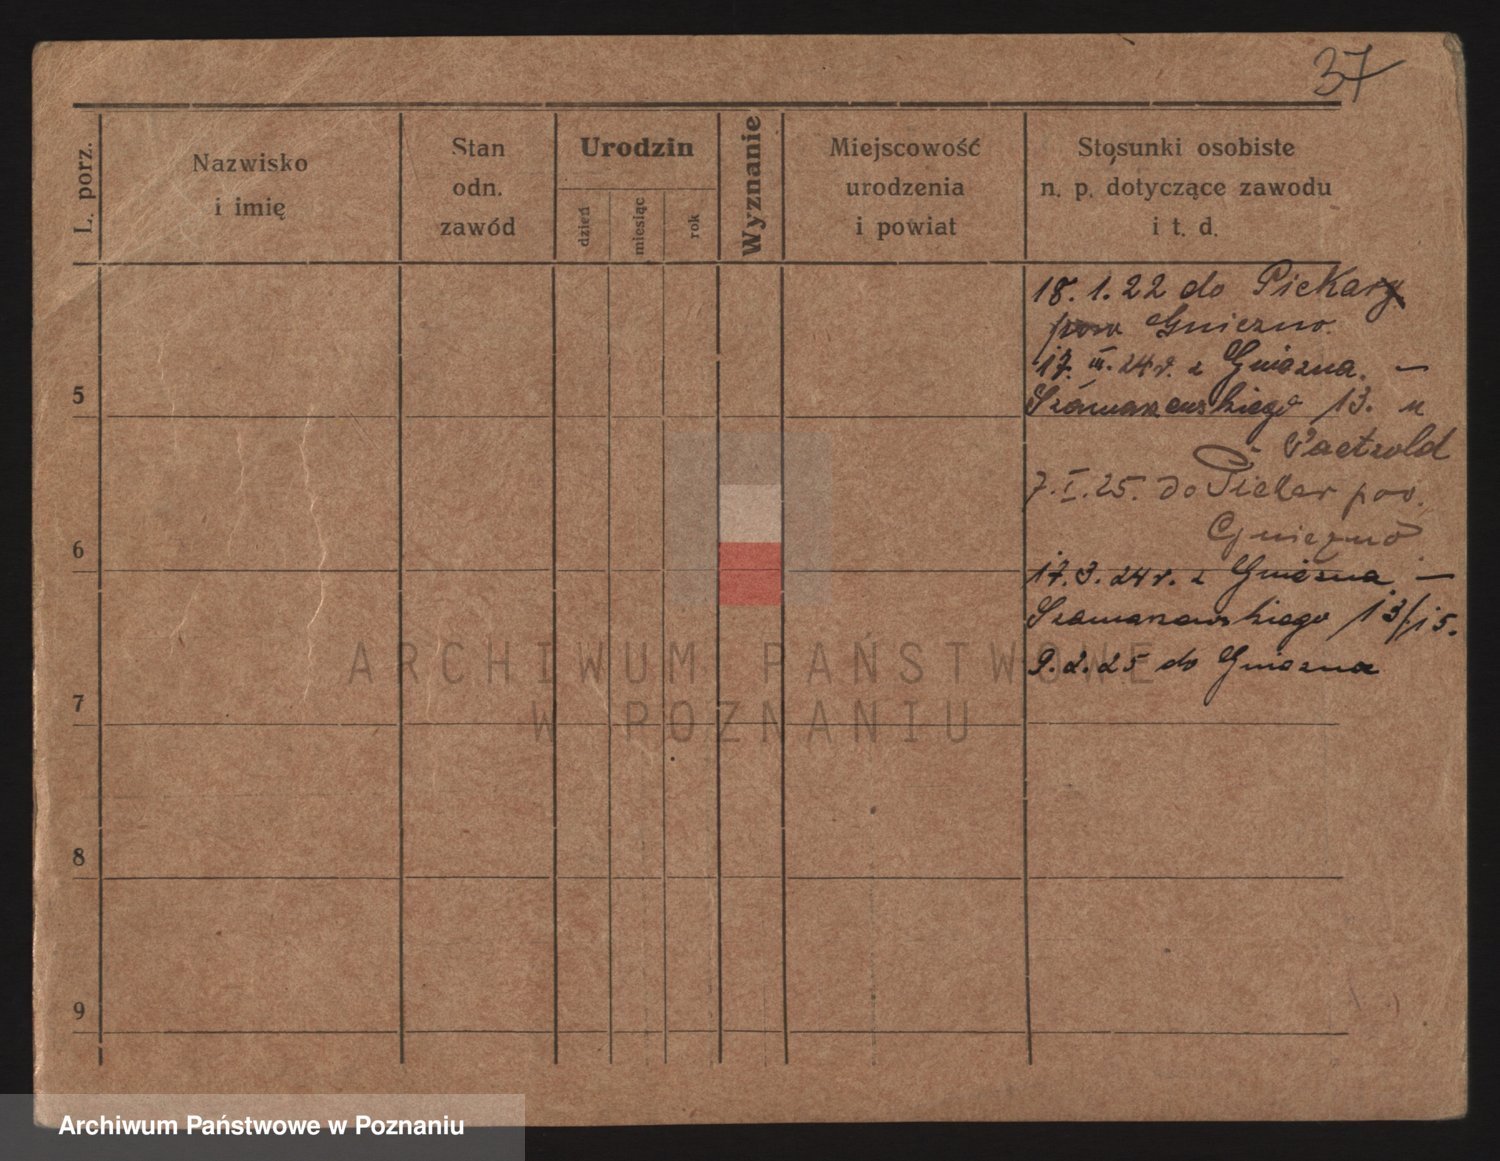 37
L. porz.
Nazwisko
i imię
Stan
odn.
zawód
Urodzin
dzień
miesiąc
rok
Wyznanie
Miejscowość
urodzenia
i powiat
Stosunki osobiste
n. p. dotyczące zawodu
i t. d.
18. 1. 22 do Piekary
pow Gniezno.
17. III. 24 r. z Gniezna. —
5
Szamarzewskiego 13. u
Paetzold
7. I. 25. do Piekar pow.
Gniezno
6
17. 3. 24 r. z Gniezna —
Szamarzewskiego 13/15.
9. 2. 25 do Gniezna
7
8
9
ARCHIWUM PAŃSTWOWE
W POZNANIU
Archiwum Państwowe w Poznaniu